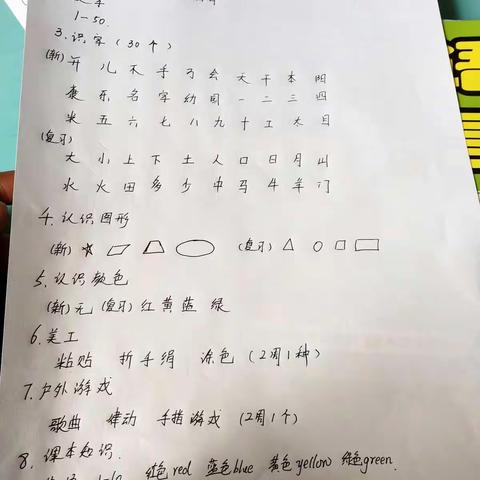 1-50.
3. 识字（30个）
(新) 开 儿 不 手 万 会 天 千 本 阳
东 名 字 幼 园 一 二 三 四
米 五 六 七 八 九 十 工 木 目
(复习)
大 小 上 下 土 人 口 日 月 山
水 火 田 多 少 中 马 牛 羊 门
4. 认识图形
(新) (复习)
5. 认识颜色
(新) 无 (复习) 红 黄 蓝 绿
6. 美工
粘贴 折手绢 涂色 (2周1种)
7. 户外游戏
歌曲 律动 手指游戏 (2周1个)
8. 课本知识.
1-10 红色 red 蓝色 blue 黄色 yellow 绿色 green.